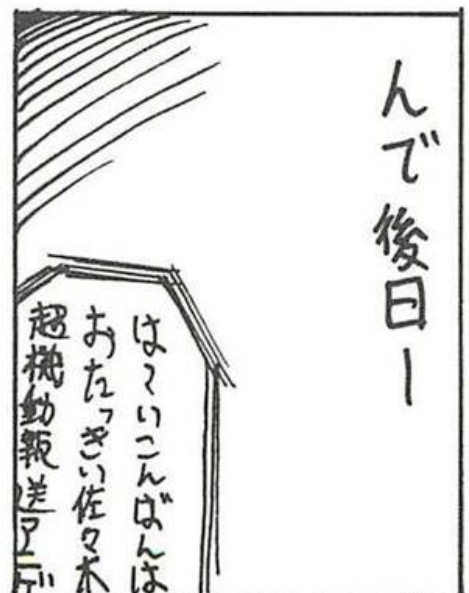 んで後日ー
は〜いこんばんは
おたっきい佐々木
超機動報送アニゲ